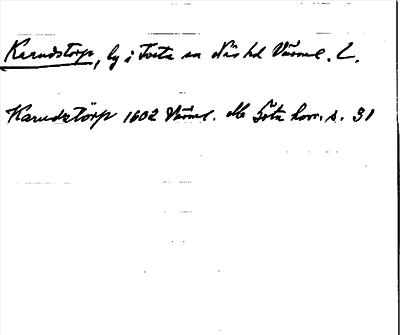 Karudstorp, by i Torta sn Näs hd Värml. L.
Karudztörp 1602 Värml. Ms Göta hovr. s. 31